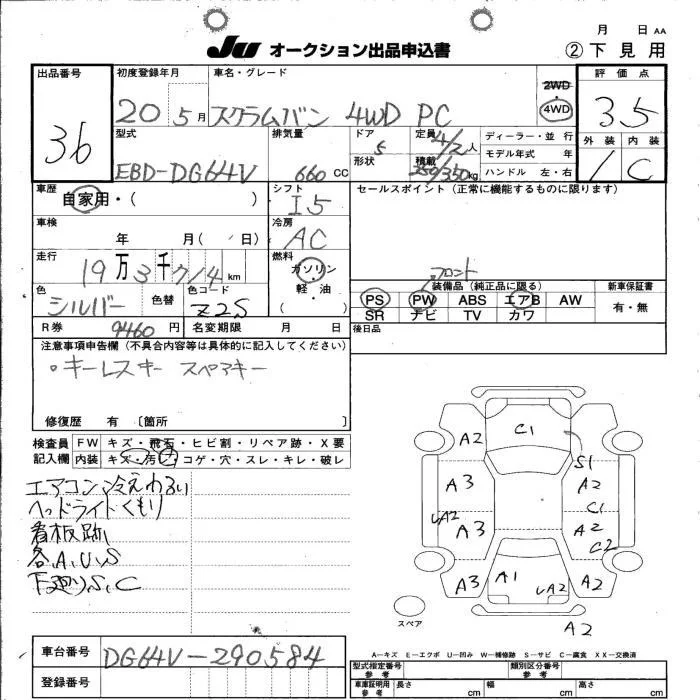 月 日 AA
JU オークション出品申込書
②下見用
出品番号 初度登録年月 車名・グレード 2WD 4WD 評価点
36 20 5月 スクラムバン 4WD PC 3.5
型式 排気量 ドア 定員 ディーラー・並 行 外装 内装
EBD-DG64V 660 CC 5 4/2人 モデル年式 年 1 C
形状 積載 350kg ハンドル 左・右
車歴 シフト セールスポイント(正常に機能するものに限ります)
自家用・( ) I5
車検 冷房
年 月( 日) AC
走行 燃料
19万3千714km ガソリン フロント
軽・油
( )
色 色替 色コード 装備品(純正品に限る) 新車保証書
シルバー Z2S PS PW ABS エアB AW 有・無
SR ナビ TV カワ
R券 9460円 名変期限 月 日 後日品
注意事項申告欄(不具合内容等は具体的に記入してください)
・キーレスキー スペアキー
修復歴 有 〔箇所 〕
検査員 FW キズ・飛石・ヒビ割・リペア跡・X要
記入欄 内装 キズ・汚・コゲ・穴・スレ・キレ・破レ
エアコン冷えわるい
ヘッドライトくもり
看板跡
各A,U,S
下廻りS,C
C1
A2
S1
A3 A2
C1
UA2
A3 A2
C2
A3 A1 UA2 A2
スペア
A2
Aーキズ Eーエクボ Uー凹み Wー補修跡 Sーサビ Cー腐食 XXー交換済
車台番号 DG64V-290584
登録番号
型式指定番号 参考 類別区分番号 参考
車庫証明用 参考 長さ cm 幅 cm 高さ cm